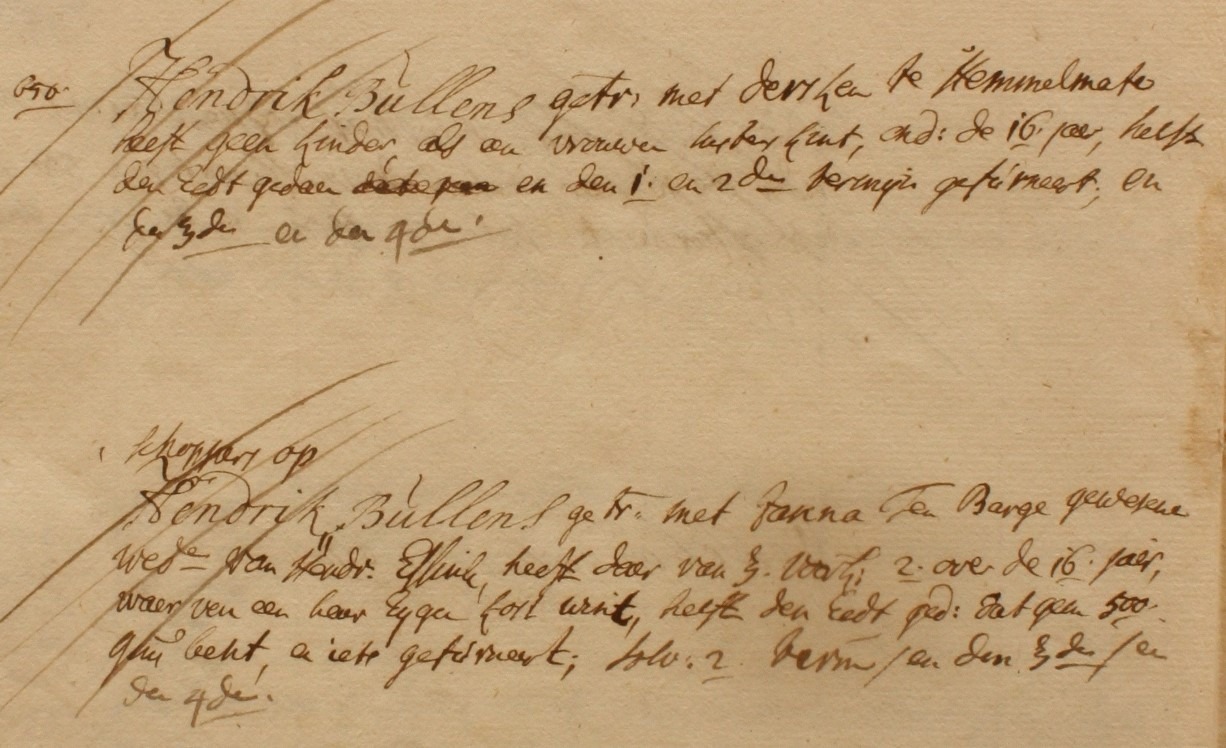 650.
Hendrik Bullens getr: met dersken te Hemmelmate
heeft geen kinder, als en vrouwen suster kint, ond: de 16. jaer, heeft
den Eedt gedaen en den 1. en 2 den termijn gefurneert, en
den 3 den en den 4 den.
op
Hendrik Bullens getr: met Janna Ten Barge gewesene
wede van Hendr: Essink, heeft daer van 3. 2. over de 16. jaer,
waer van een haer Eygen kost wint, heeft den Eedt ged: dat geen 500.
gul besit, en iets gefurneert; solv: 2 term / en den 3 den / en
den 4 den.